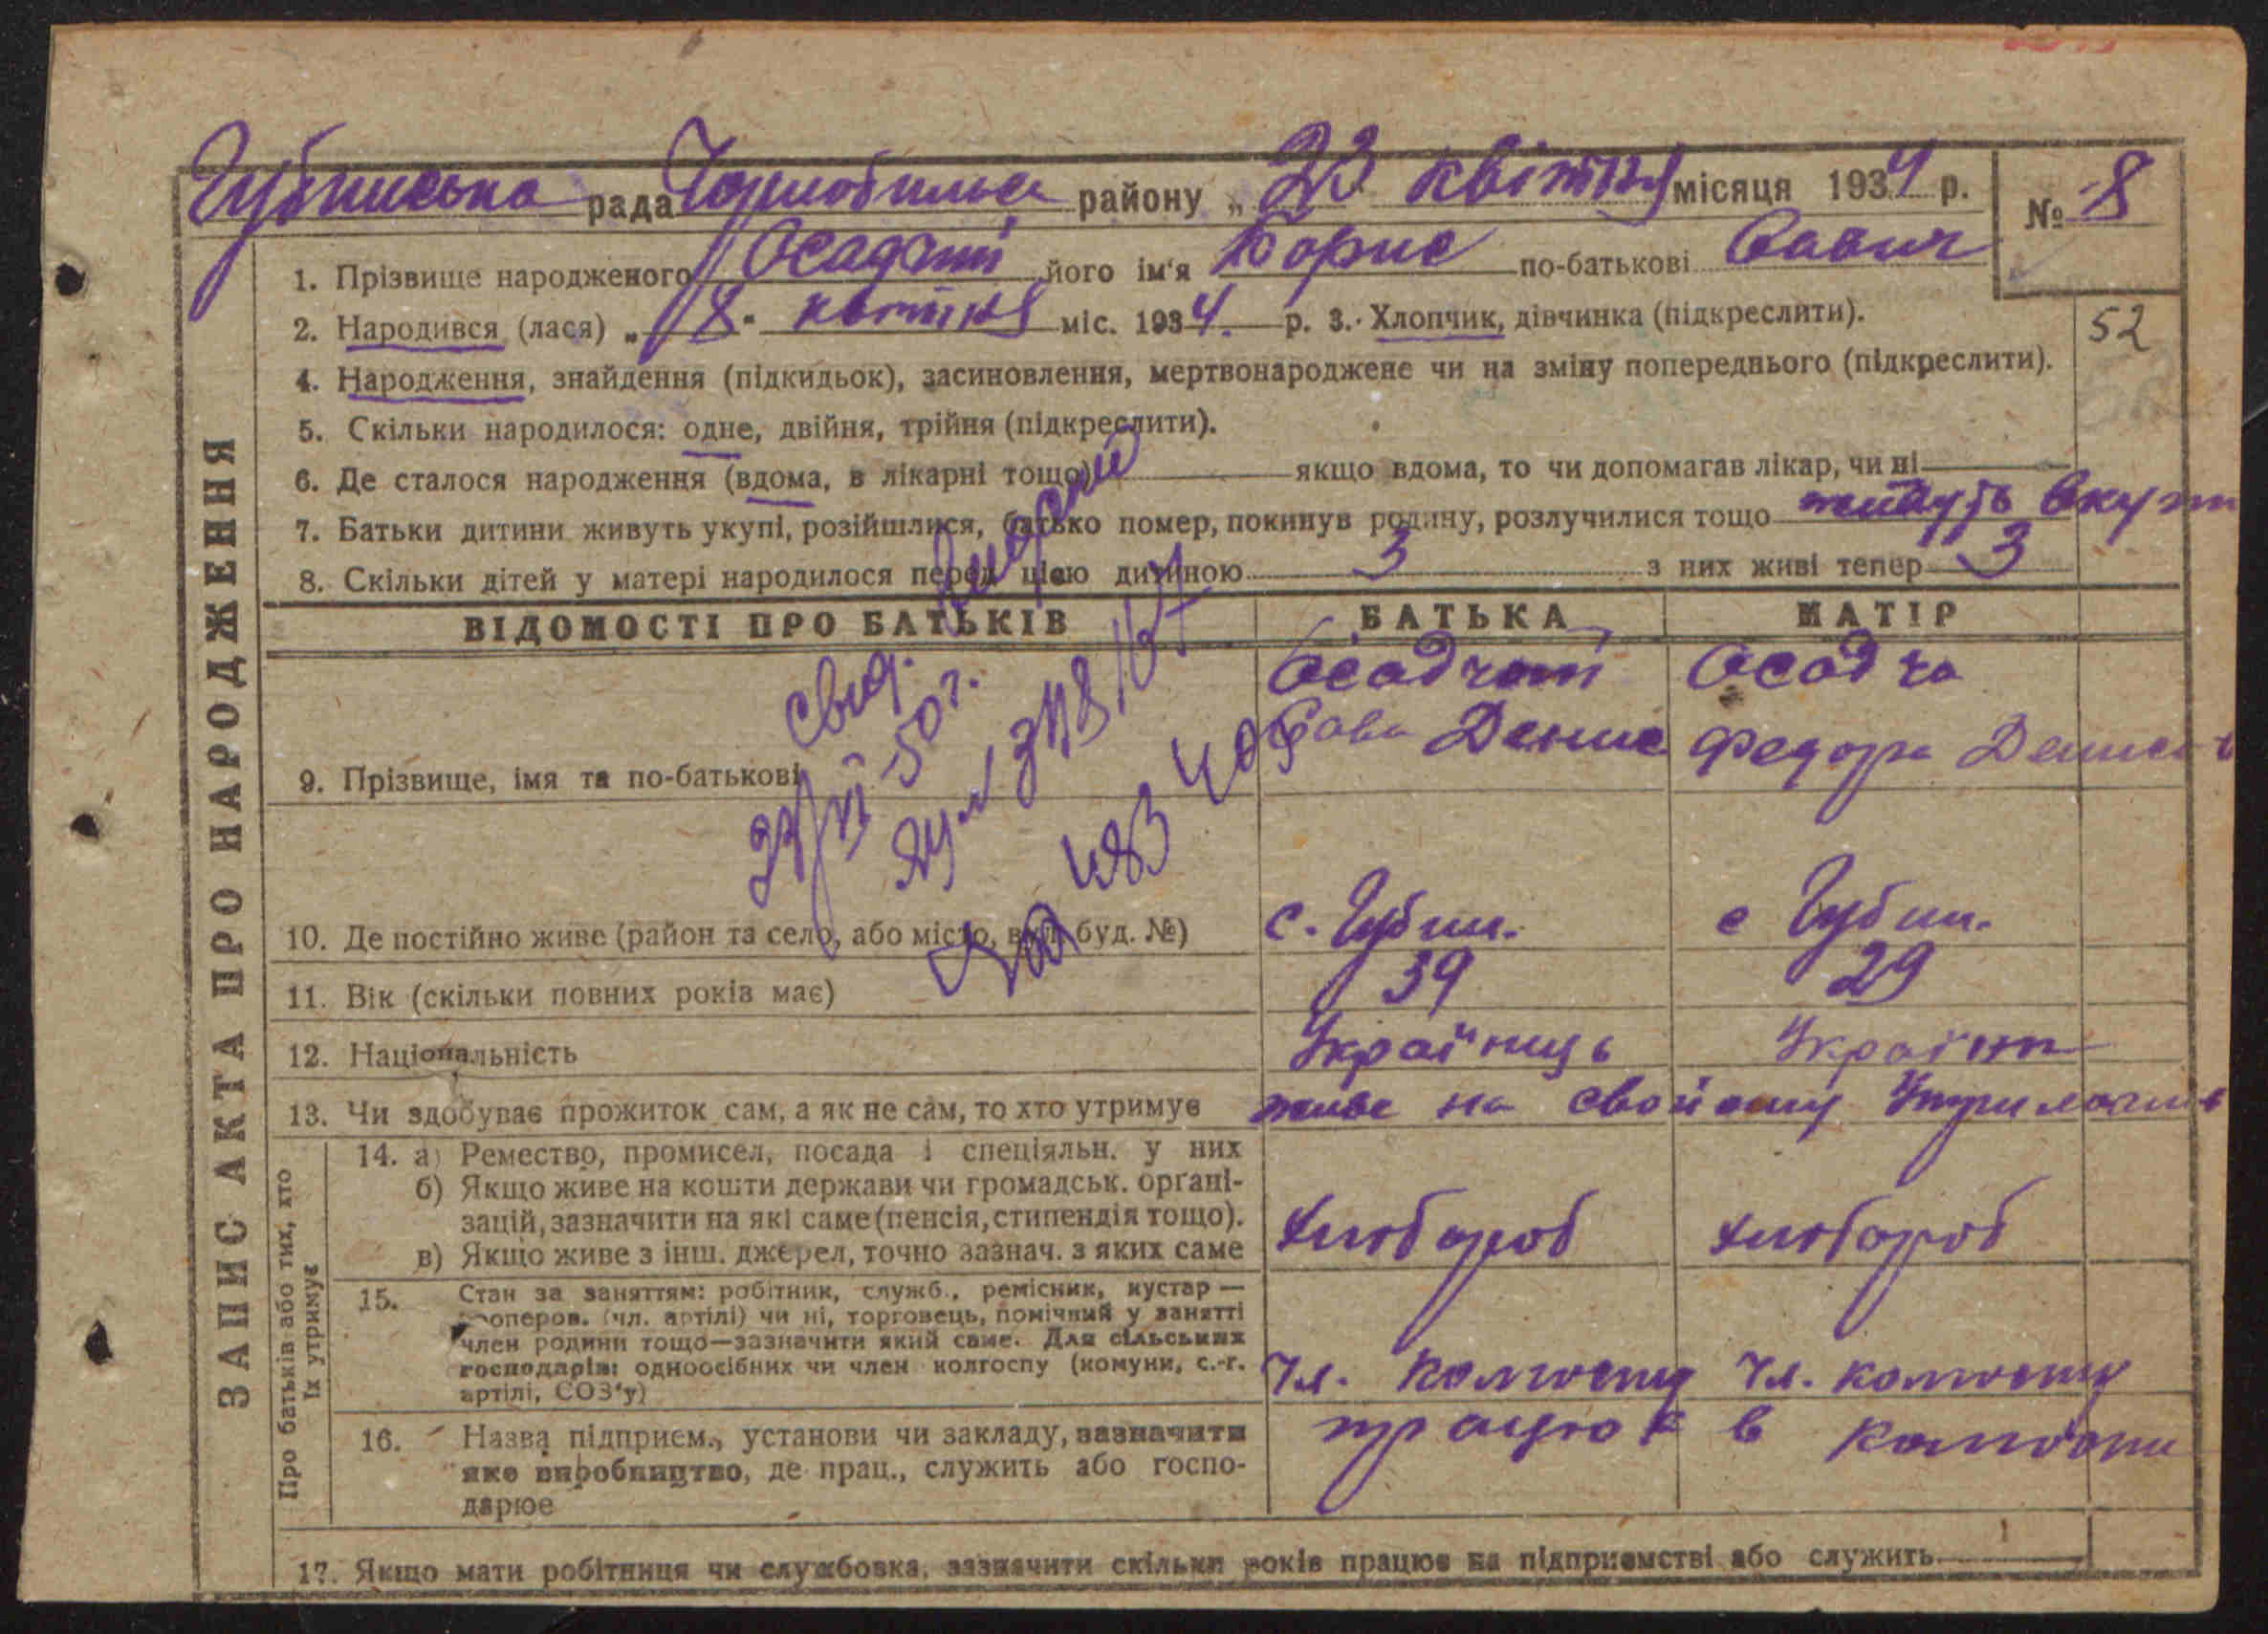 Губинська рада Чорнобильс району „ 23 квітня місяця 1934 р.
№ 8
1. Прізвище народженого Осадчий його ім'я Борис по-батькові Савич
2. Народився (лася) „ 8 " квітня міс. 1934. р. 3. Хлопчик, дівчинка (підкреслити).
52
4. Народження, знайдення (підкидьок), засиновлення, мертвонароджене чи на зміну попереднього (підкреслити).
5. Скільки народилося: одне, двійня, трійня (підкреслити).
6. Де сталося народження (вдома, в лікарні тощо) якщо вдома, то чи допомагав лікар, чи ні
7. Батьки дитини живуть укупі, розійшлися, батько помер, покинув родину, розлучилися тощо живуть вкупі
8. Скільки дітей у матері народилося перед цією дитиною 3 з них живі тепер 3
ВІДОМОСТІ ПРО БАТЬКІВ БАТЬКА МАТІР
Осадчий Осадча
Сава Денис Федора Денис
9. Прізвище, імя та по-батькові
свид.
50 г.
483 405
10. Де постійно живе (район та село, або місто, вул. буд. №) с. Губин. с Губин.
11. Вік (скільки повних років має) 39 29
12. Національність Українець Україн
13. Чи здобуває прожиток сам, а як не сам, то хто утримує живе на свойому утриманні
14. а) Ремество, промисел, посада і спеціяльн. у них
б) Якщо живе на кошти держави чи громадськ. органі-
зацій, зазначити на які саме (пенсія, стипендія тощо).
в) Якщо живе з інш. джерел, точно зазнач. з яких саме хлібороб хлібороб
15. Стан за заняттям: робітник, служб., ремісник, кустар —
кооперов. (чл. артілі) чи ні, торговець, помічний у занятті
член родини тощо—зазначити який саме. Для сільських
господарів: одноосібних чи член колгоспу (комуни, с.-г.
артілі, СОЗ'у) Чл. колгоспу Чл. колгоспу
16. Назва підприєм., установи чи закладу, зазначити працює в колгоспі
яке виробництво, де прац., служить або госпо-
дарює
17. Якщо мати робітниця чи службовка, зазначити скільки років працює на підприємстві або служить
ЗАПИС АКТА ПРО НАРОДЖЕННЯ
Про батьків або тих, хто
їх утримує